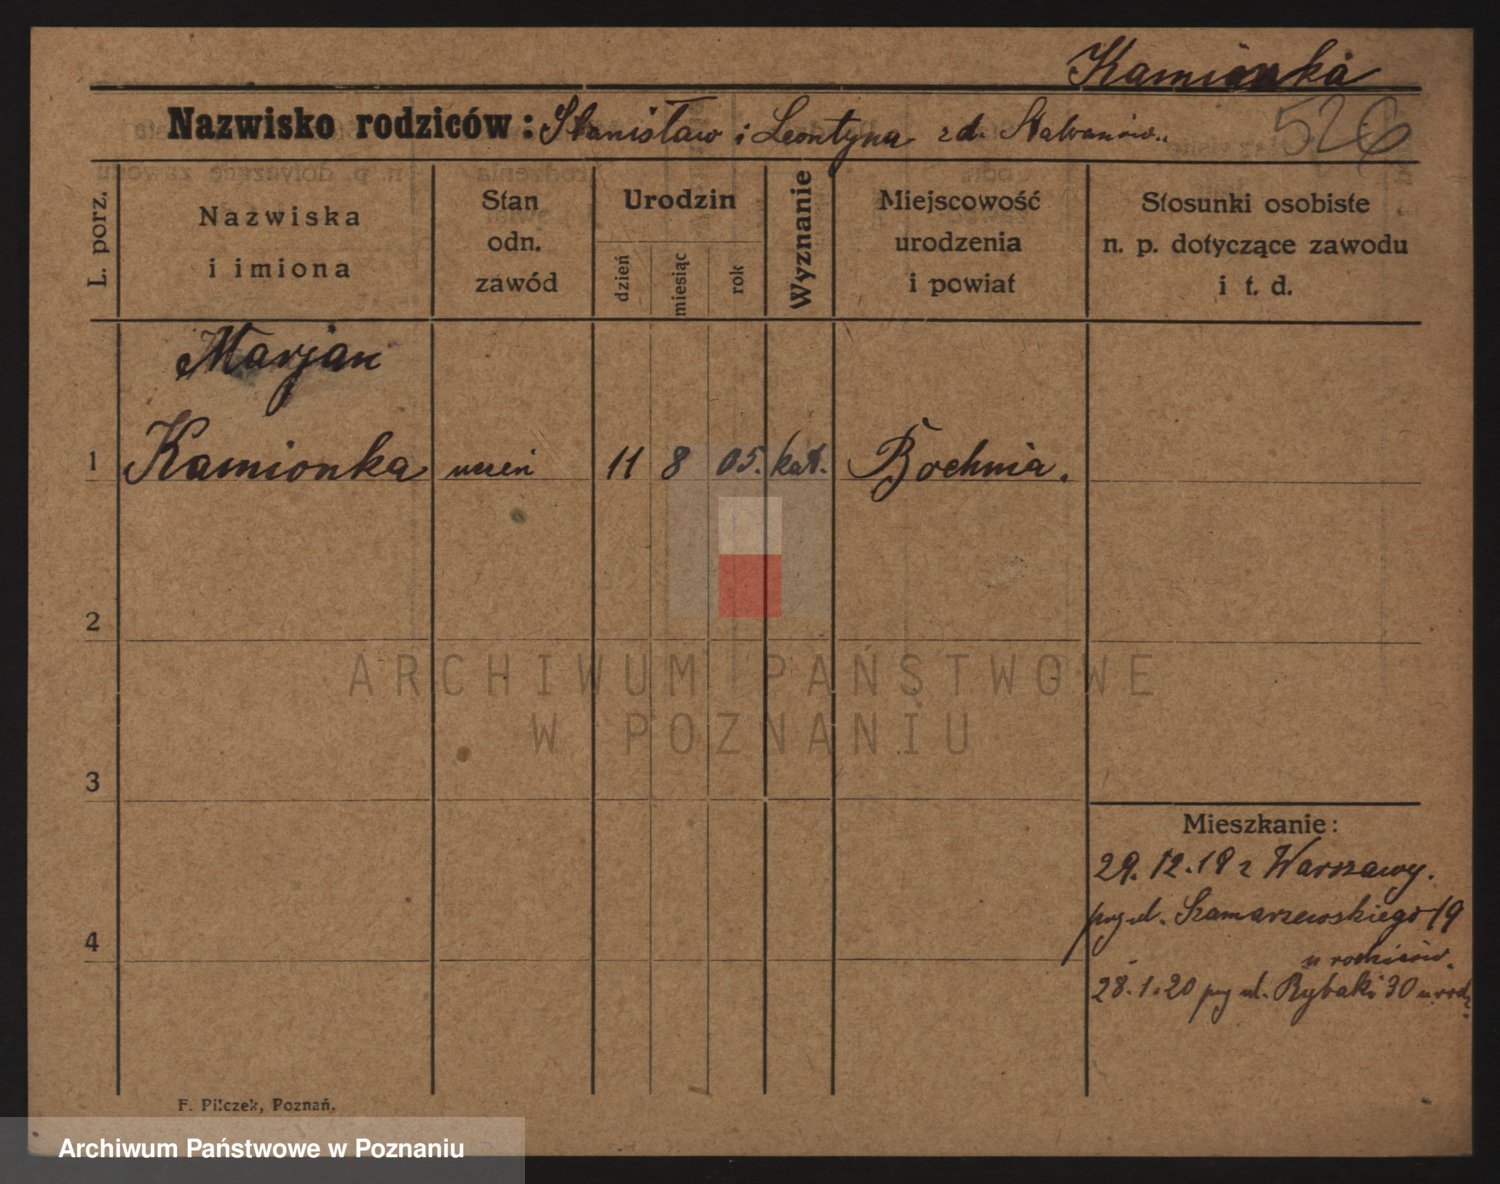 Kamionka
Nazwisko rodziców: Stanisław i Leontyna z d.
526
L. porz.
Nazwiska
i imiona
Stan
odn.
zawód
Urodzin
dzień
miesiąc
rok
Wyznanie
Miejscowość
urodzenia
i powiat
Stosunki osobiste
n. p. dotyczące zawodu
i t. d.
Marjan
1 Kamionka uczeń 11 8 05. kat. Bochnia.
2
ARCHIWUM PAŃSTWOWE
W POZNANIU
3
Mieszkanie:
29.12.19 z Warszawy.
przy ul. Szamarzewskiego 19
4
u rodziców.
28.1.20 przy ul. Rybaki 30 u rodz.
F. Pilczek, Poznań.
Archiwum Państwowe w Poznaniu